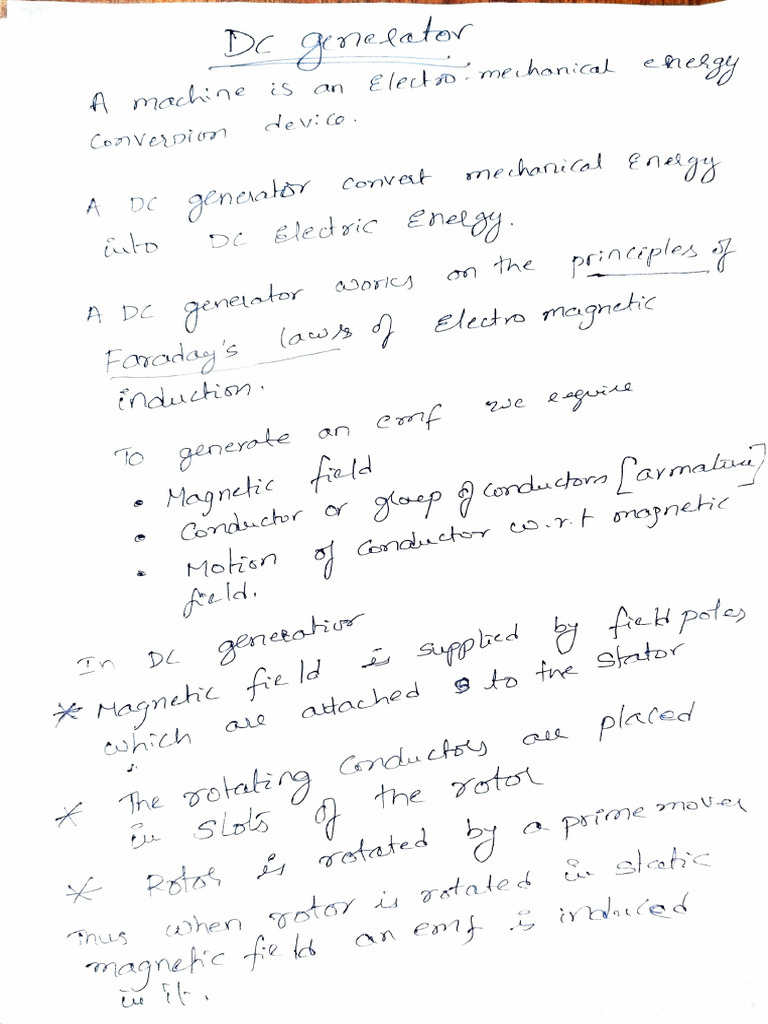 DC generator
A machine is an Electro-mechanical energy
conversion device.
A DC generator convert mechanical Energy
into DC Electric Energy.
A DC generator works on the principles of
Faraday's laws of Electro magnetic
induction.
To generate an emf we require
• Magnetic field
• Conductor or gloup of conductors [armature]
• Motion of conductor w.r.t magnetic
field.
In DC generatior
* Magnetic field is supplied by field poles
which are attached to the stator
* The rotating conductors are placed
in slots of the rotor
* Rotor is rotated by a prime mover
Thus when rotor is rotated in static
magnetic field an emf is induced
in it.